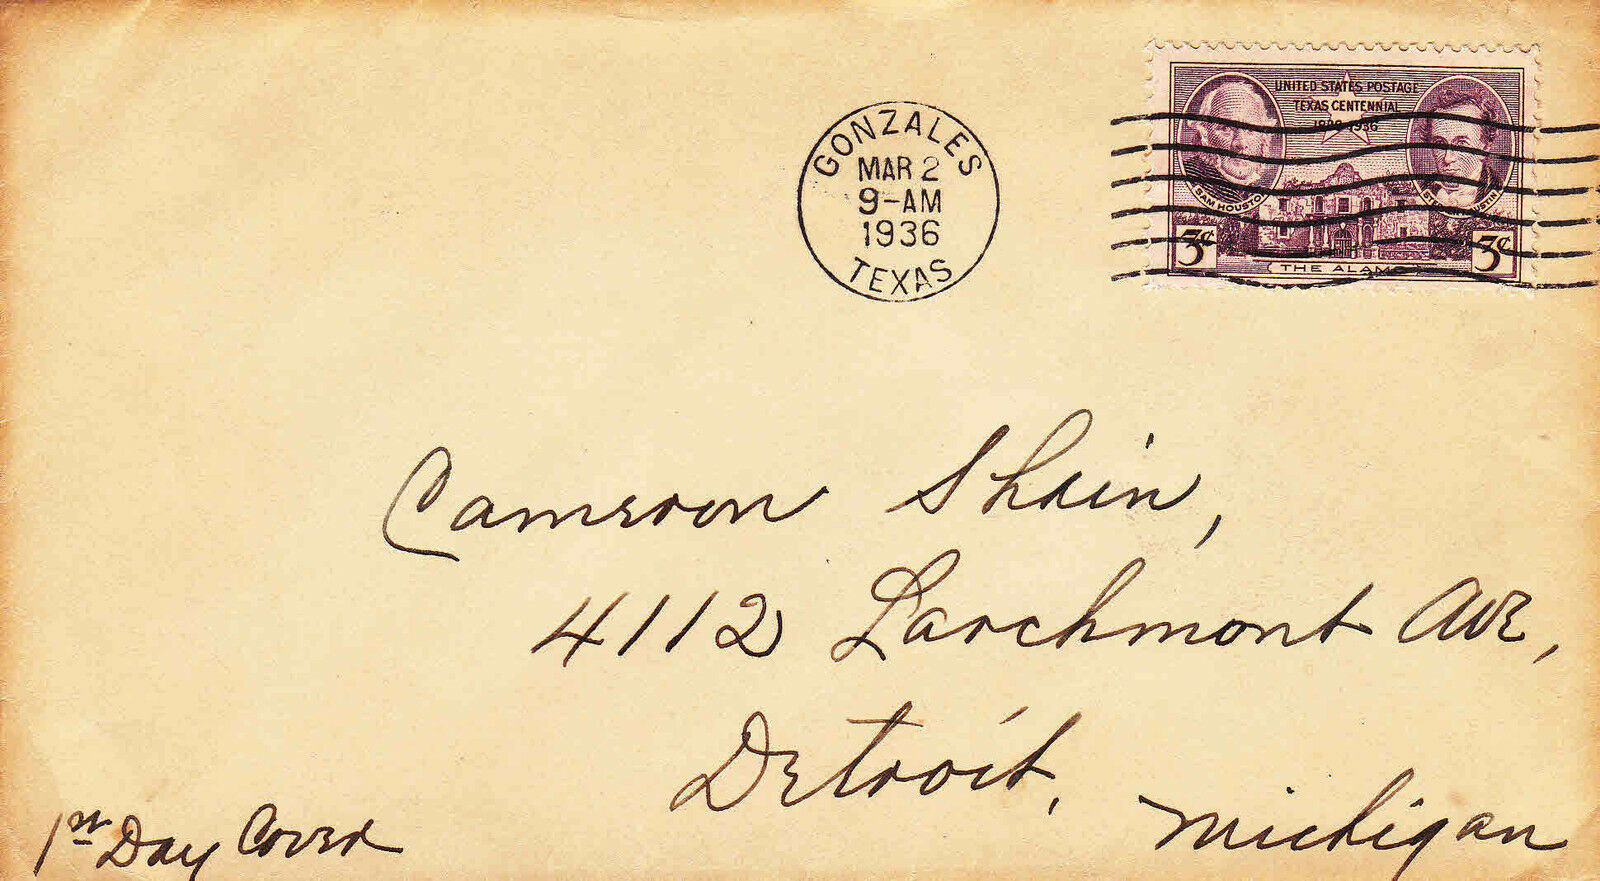 GONZALES
MAR 2
9-AM
1936
TEXAS
UNITED STATES POSTAGE
TEXAS CENTENNIAL
1936
SAM HOUSTON
3¢
THE ALAMO
3¢
Cameron Shain,
4112 Larchmont Ave,
Detroit,
Michigan
1st Day Cover